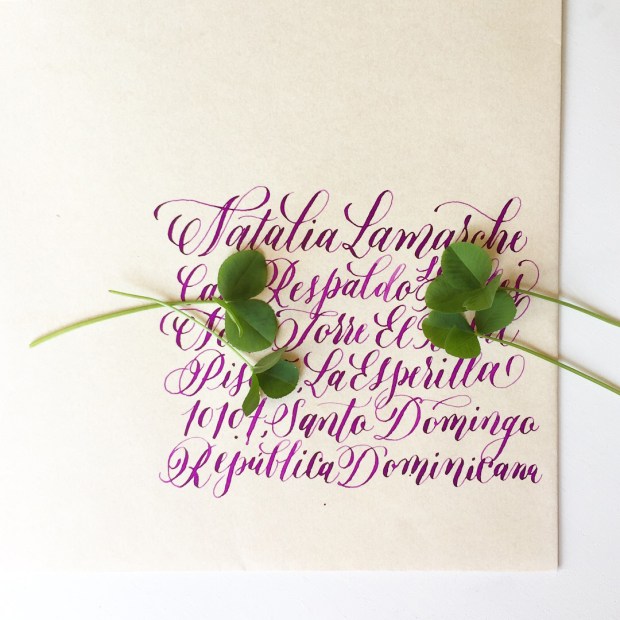 Natalia Lamarche
Respaldo
Torre El
La Esperilla
10107, Santo Domingo
República Dominicana